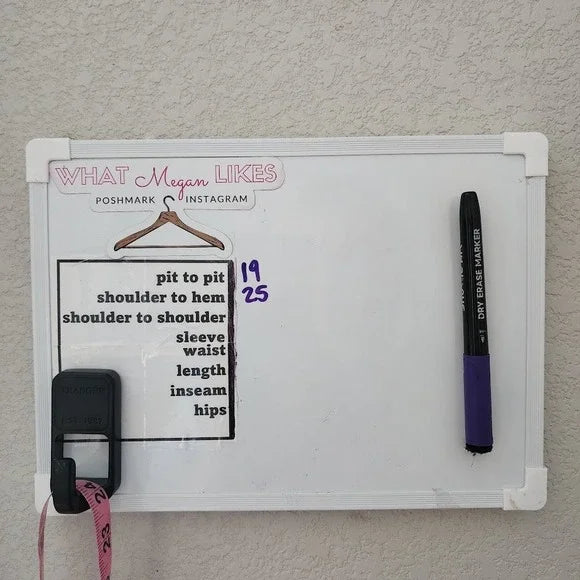 WHAT Megan LIKES
POSHMARK INSTAGRAM
pit to pit 19
shoulder to hem 25
shoulder to shoulder
sleeve
waist
length
inseam
hips
DRY ERASE MARKER
24
23